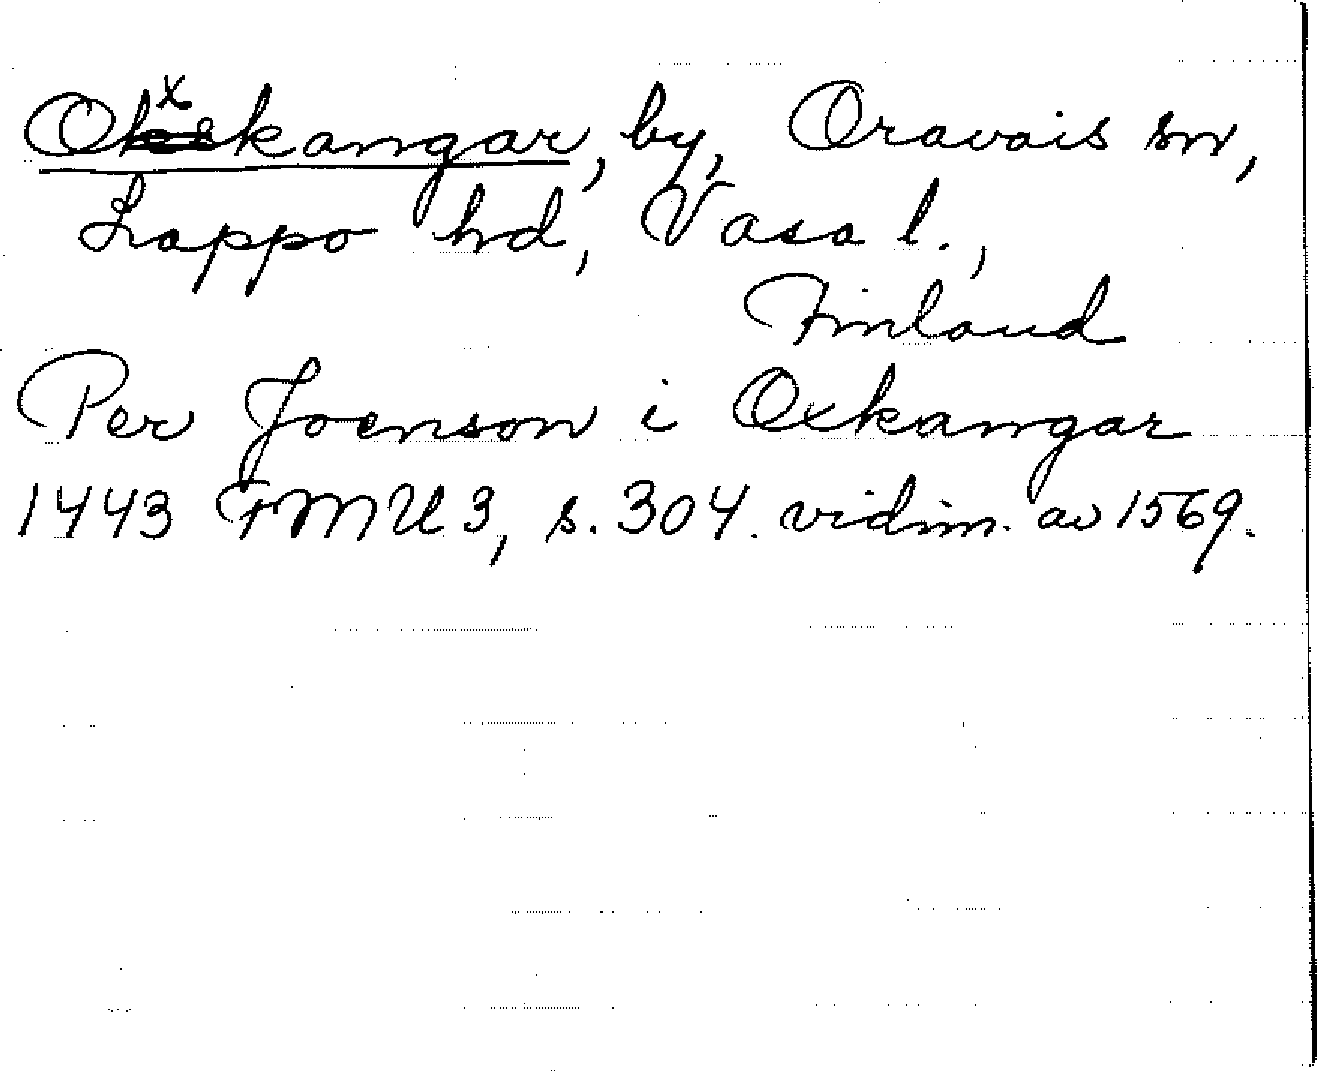 Oxkangar, by, Oravais sn,
Lappo hd, Vasa l.,
Finland
Per Joenson i Oxkangar
1443 FMU 3, s. 304. vidim. av 1569.